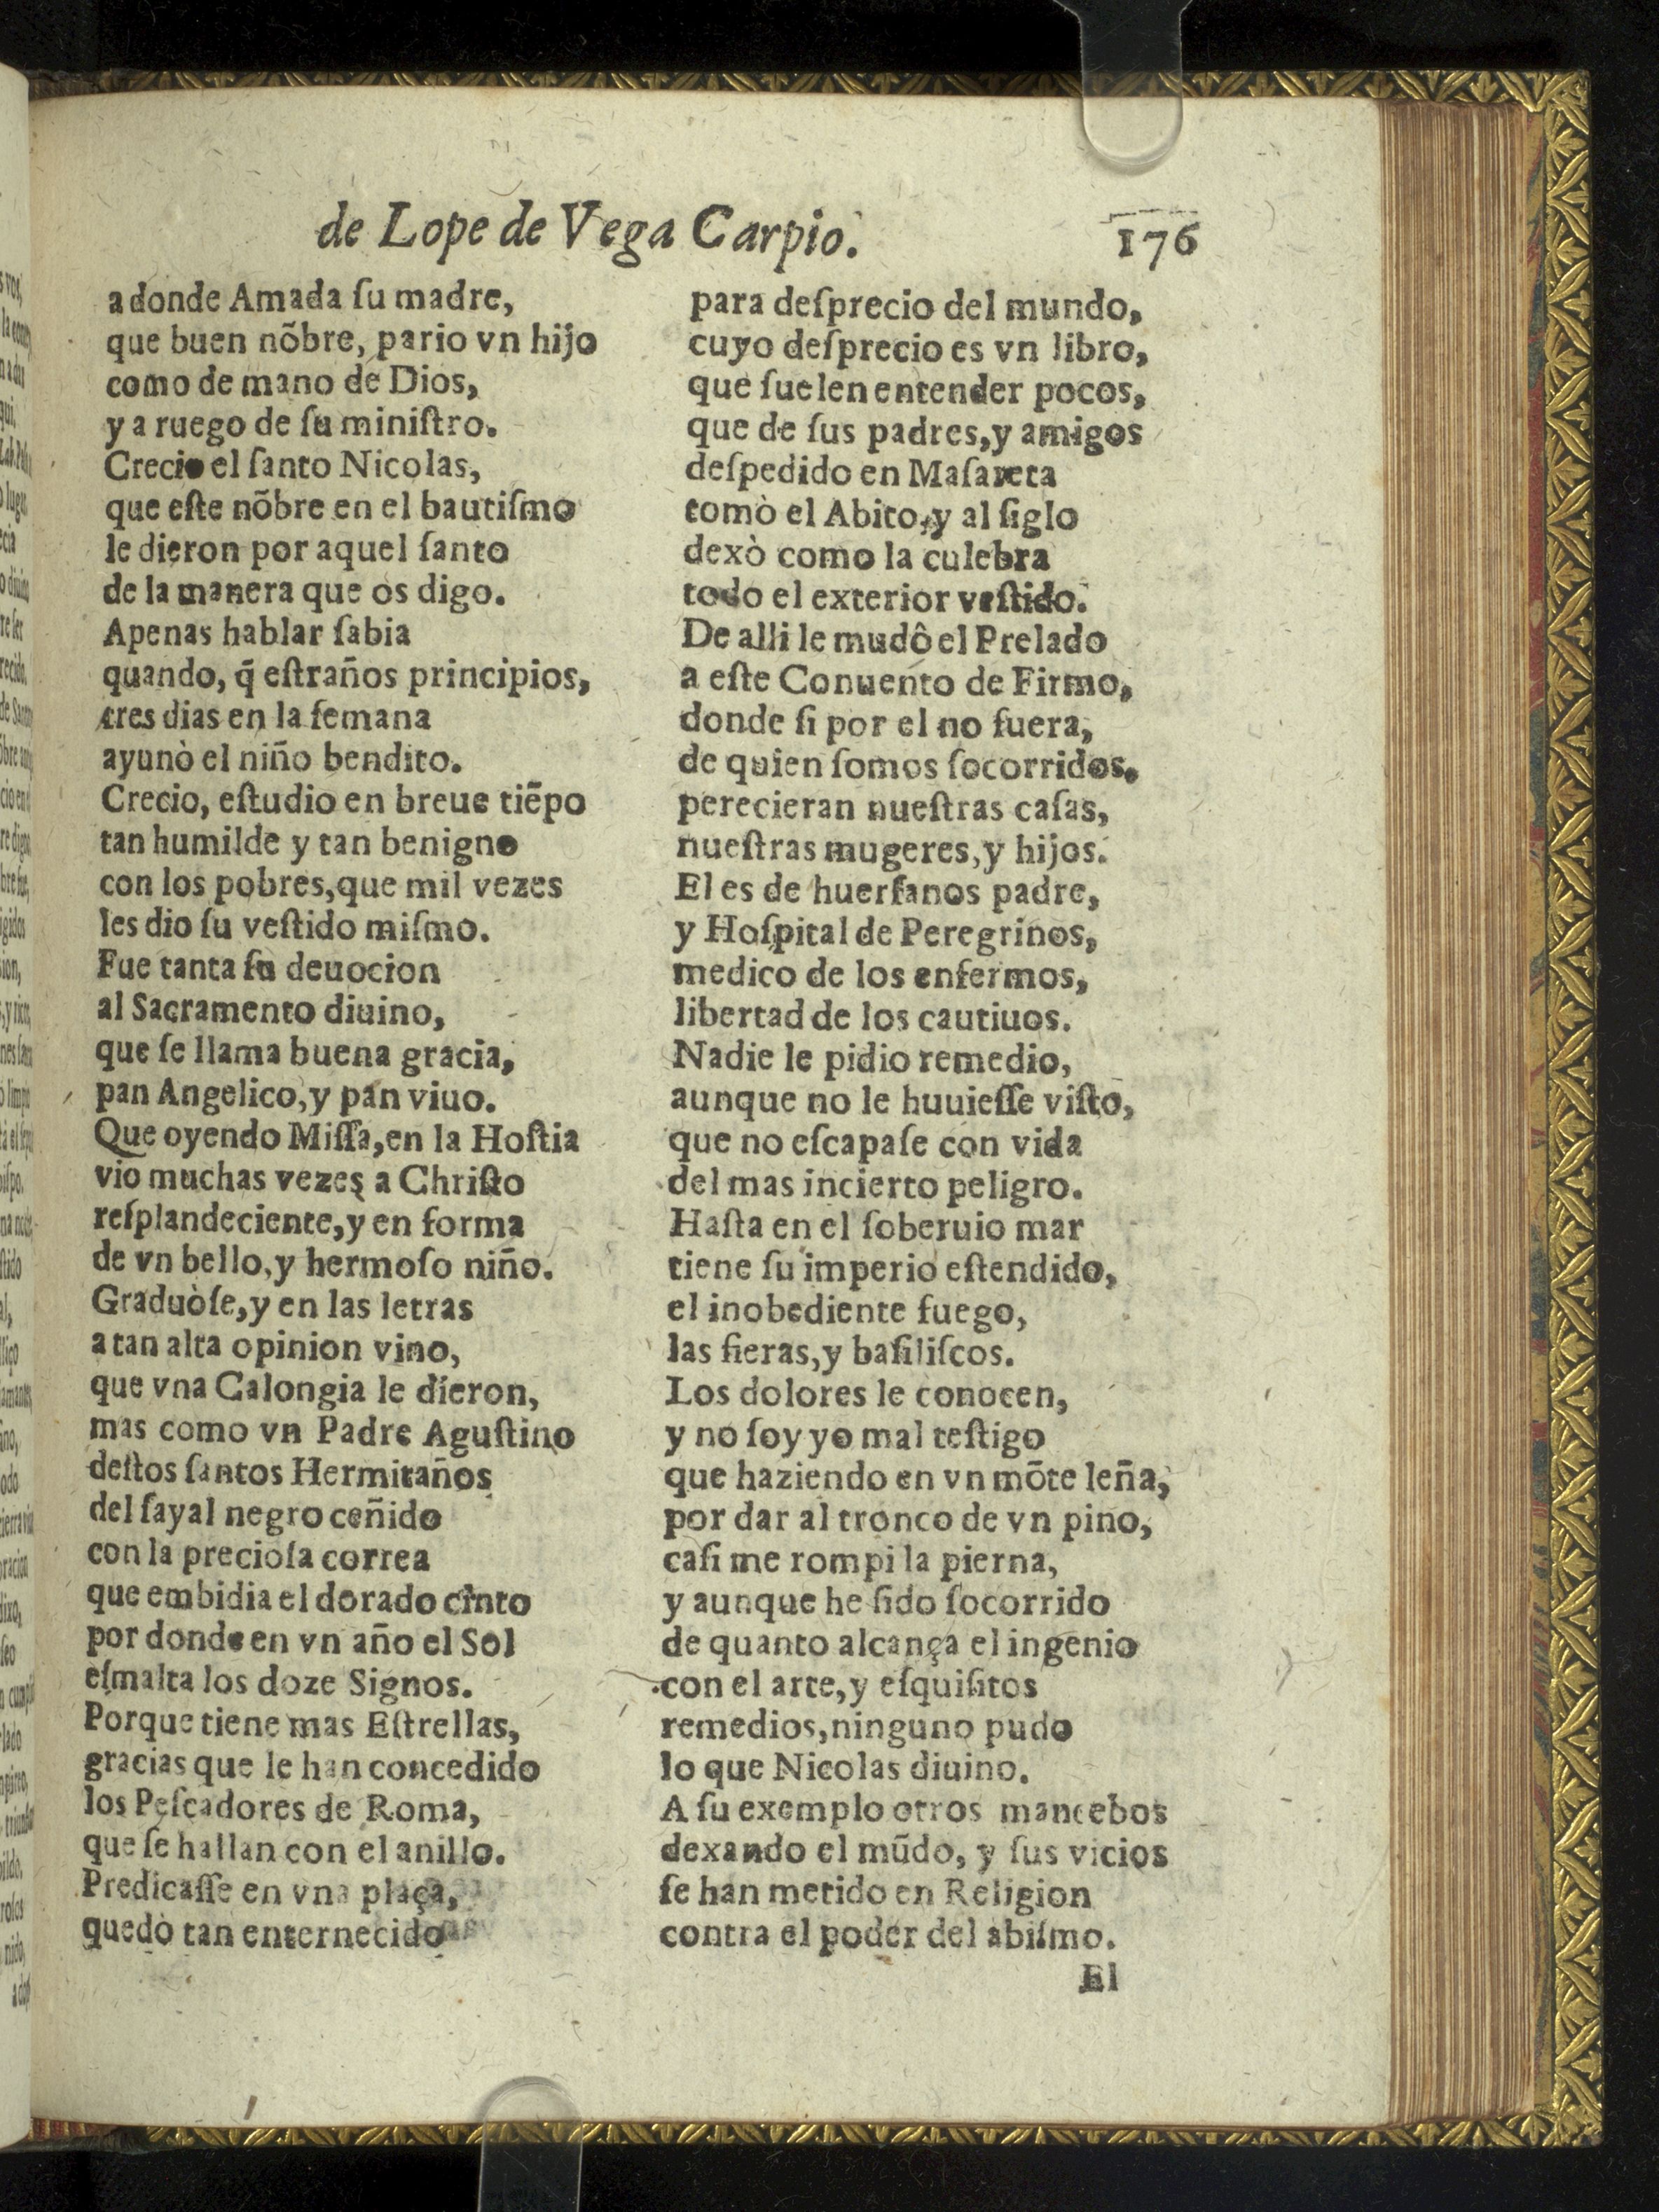 de Lope de Vega Carpio.
176
adonde Amada ſu madre,
que buen nõbre, pario vn hijo
como de mano de Dios,
y a ruego de ſu miniſtro.
Crecio el ſanto Nicolas,
que eſte nõbre en el bautiſmo
le dieron por aquel ſanto
de la manera que os digo.
Apenas hablar ſabia
quando, q̃ eſtraños principios,
tres dias en la ſemana
ayunò el niño bendito.
Crecio, eſtudio en breue tiẽpo
tan humilde y tan benigno
con los pobres, que mil vezes
les dio ſu veſtido miſmo.
Fue tanta ſu deuocion
al Sacramento diuino,
que ſe llama buena gracia,
pan Angelico, y pan viuo.
Que oyendo Miſſa, en la Hoſtia
vio muchas vezes a Chriſto
reſplandeciente, y en forma
de vn bello, y hermoſo niño.
Graduòſe, y en las letras
a tan alta opinion vino,
que vna Calongia le dieron,
mas como vn Padre Aguſtino
deſtos ſantos Hermitaños
del ſayal negro ceñido
con la precioſa correa
que embidia el dorado cinto
por donde en vn año el Sol
eſmalta los doze Signos.
Porque tiene mas Eſtrellas,
gracias que le han concedido
los Peſcadores de Roma,
que ſe hallan con el anillo.
Predicaſſe en vna plaça,
quedò tan enternecido
para deſprecio del mundo,
cuyo deſprecio es vn libro,
que ſuelen entender pocos,
que de ſus padres, y amigos
deſpedido en Maſareta
tomò el Abito, y al ſiglo
dexò como la culebra
todo el exterior veſtido.
De alli le mudô el Prelado
a eſte Conuento de Firmo,
donde ſi por el no fuera,
de quien ſomos ſocorridos,
perecieran nueſtras caſas,
nueſtras mugeres, y hijos.
El es de huerfanos padre,
y Hoſpital de Peregrinos,
medico de los enfermos,
libertad de los cautiuos.
Nadie le pidio remedio,
aunque no le huuieſſe viſto,
que no eſcapaſe con vida
del mas incierto peligro.
Haſta en el ſoberuio mar
tiene ſu imperio eſtendido,
el inobediente fuego,
las fieras, y baſiliſcos.
Los dolores le conocen,
y no ſoy yo mal teſtigo
que haziendo en vn mõte leña,
por dar al tronco de vn pino,
caſi me rompi la pierna,
y aunque he ſido ſocorrido
de quanto alcança el ingenio
con el arte, y eſquiſitos
remedios, ninguno pudo
lo que Nicolas diuino.
A ſu exemplo otros mancebos
dexando el mũdo, y ſus vicios
ſe han metido en Religion
contra el poder del abiſmo.
El